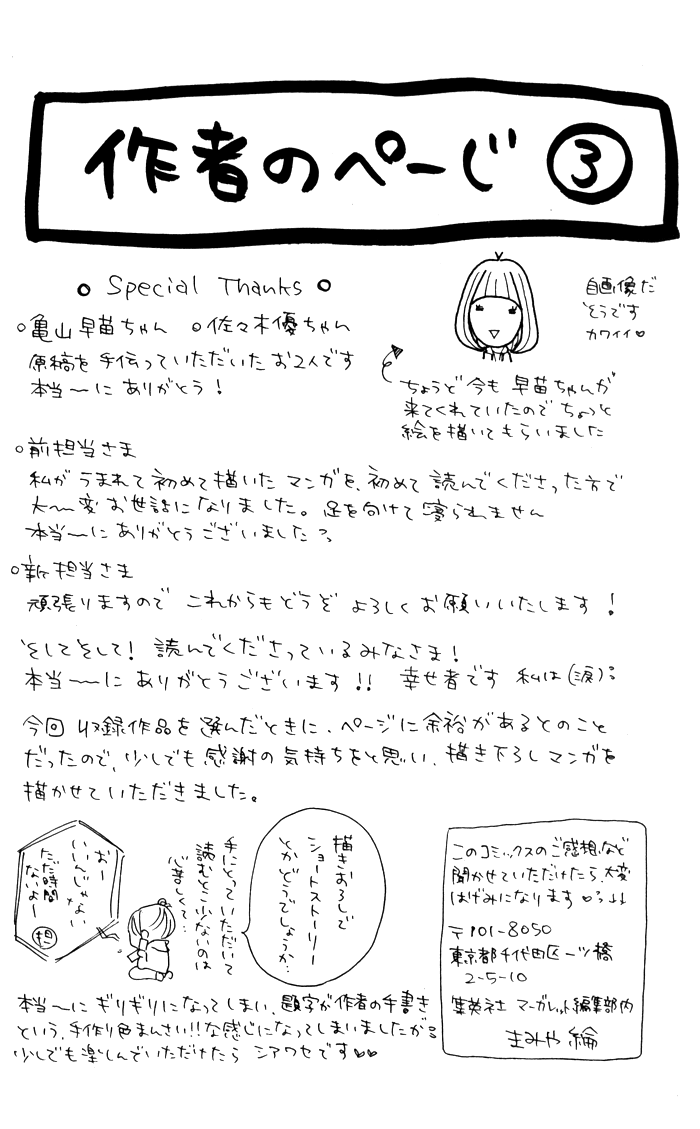 作者のぺーじ ③
○ Special Thanks ○
○亀山早苗ちゃん ○佐々木優ちゃん
原稿を手伝っていただいたお2人です
本当〜にありがとう!
自画像だ
そうです
カワイイ♡
ちょうど今も 早苗ちゃんが
来てくれていたので ちょっと
絵を描いてもらいました
○前担当さま
私が うまれて初めて描いた マンガを、初めて 読んでくださった方で
大〜変 お世話になりました。足を向けて寝られません
本当〜にありがとうございました
○新担当さま
頑張りますので これからもどうぞ よろしくお願いいたします!
そしてそして! 読んでくださっているみなさま!
本当〜に ありがとうございます!! 幸せ者です 私は(涙)
今回 収録作品を選んだときに、ページに余裕があるとのこと
だったので、少しでも感謝の気持ちをと思い、描き下ろしマンガを
描かせていただきました。
描きおろしで
ショートストーリー
とかどうでしょうか…
手にとっていただいて
読むとこ少ないのは
心苦しくて…
おー
いいんじゃない
ただ時間
ないよー
担
本当〜に ギリギリになってしまい、題字が作者の手書き
という、手作り色まんさい!!な感じになってしまいましたが
少しでも楽しんでいただけたら シアワセです♡♡
このコミックスのご感想など
聞かせていただけたら、大変
はげみになります♡
〒101-8050
東京都千代田区一ツ橋
2-5-10
集英社 マーガレット編集部内
まみや 綸